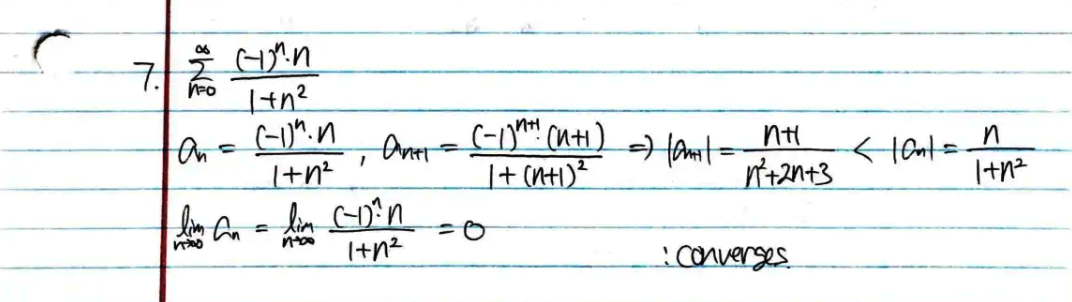 7. \sum_{n=0}^{\infty} \frac{(-1)^n \cdot n}{1+n^2}
a_n = \frac{(-1)^n \cdot n}{1+n^2} , a_{n+1} = \frac{(-1)^{n+1} \cdot (n+1)}{1+(n+1)^2} \Rightarrow |a_{n+1}| = \frac{n+1}{n^2+2n+3} < |a_n| = \frac{n}{1+n^2}
\lim_{n \to \infty} a_n = \lim_{n \to \infty} \frac{(-1)^n \cdot n}{1+n^2} = 0
: converges